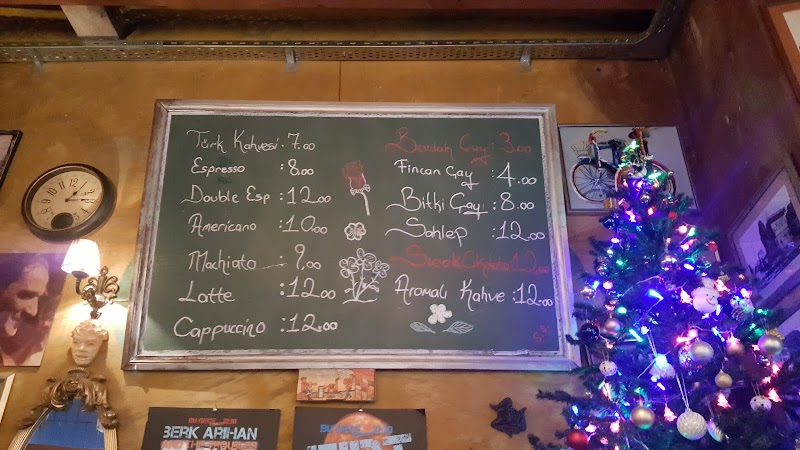 Türk Kahvesi : 7.00
Espresso : 8.00
Double Esp : 12.00
Americano : 10.00
Machiato : 9,00
Latte : 12.00
Cappuccino : 12.00
Bardak Çay : 3.00
Fincan Çay : 4.00
Bitki Çayı : 8.00
Sahlep : 12.00
Sıcak Çikolata 12.00
Aromalı Kahve : 12.00
BU GECE
BERK ARIHAN
BU GECE